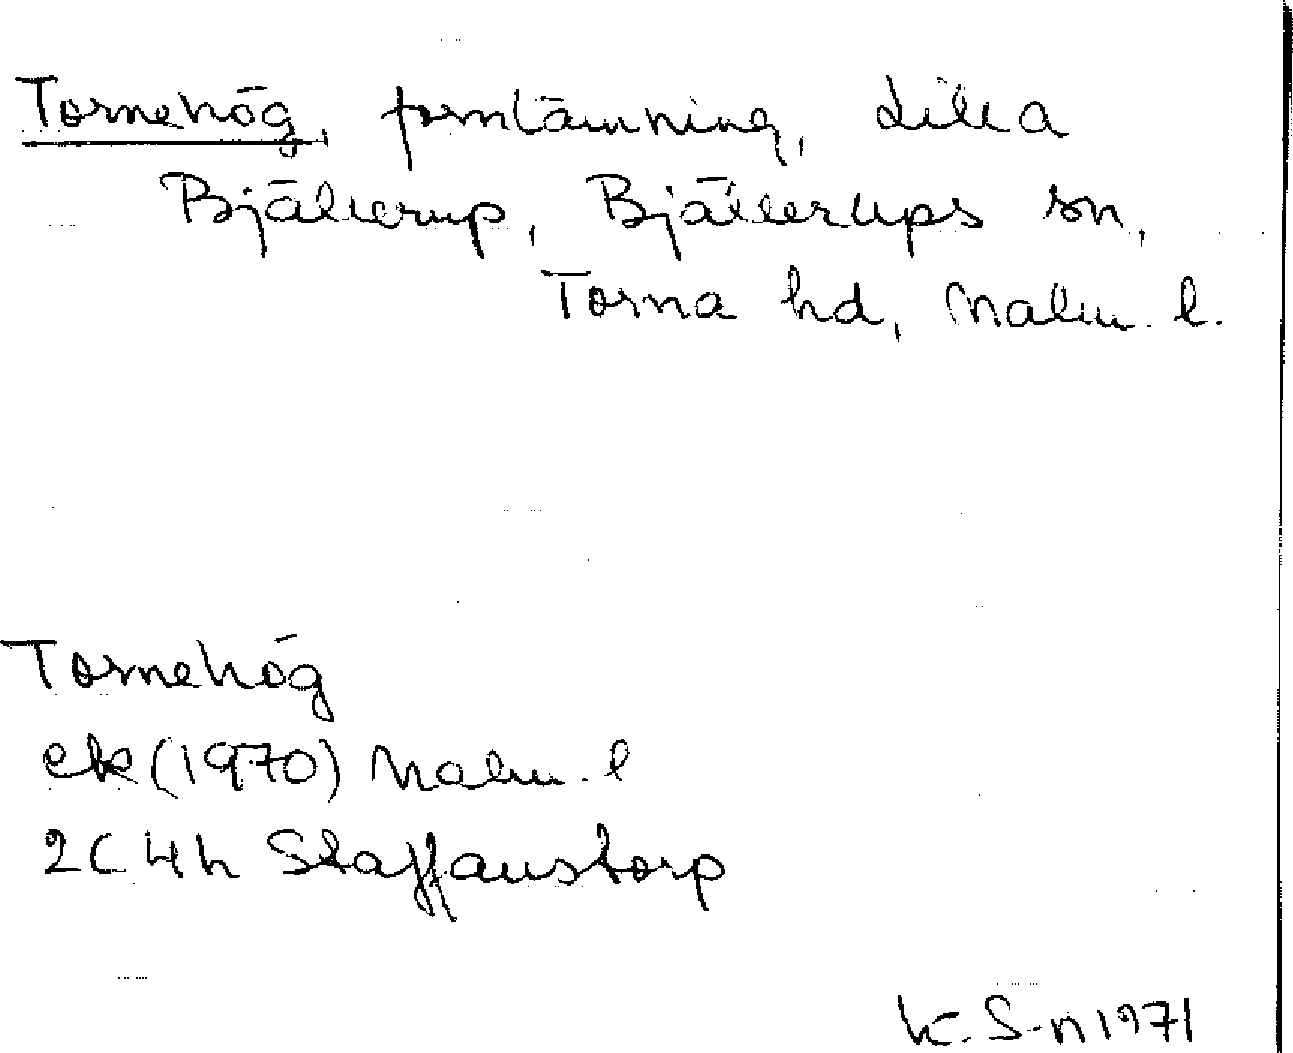 Tornehög, fornlämning, Lilla
Bjällerup, Bjällerups sn,
Torna hd, Malm. l.
Tornehög
ek (1970) Malm. l
2C 4h Staffanstorp
K. S-n 1971